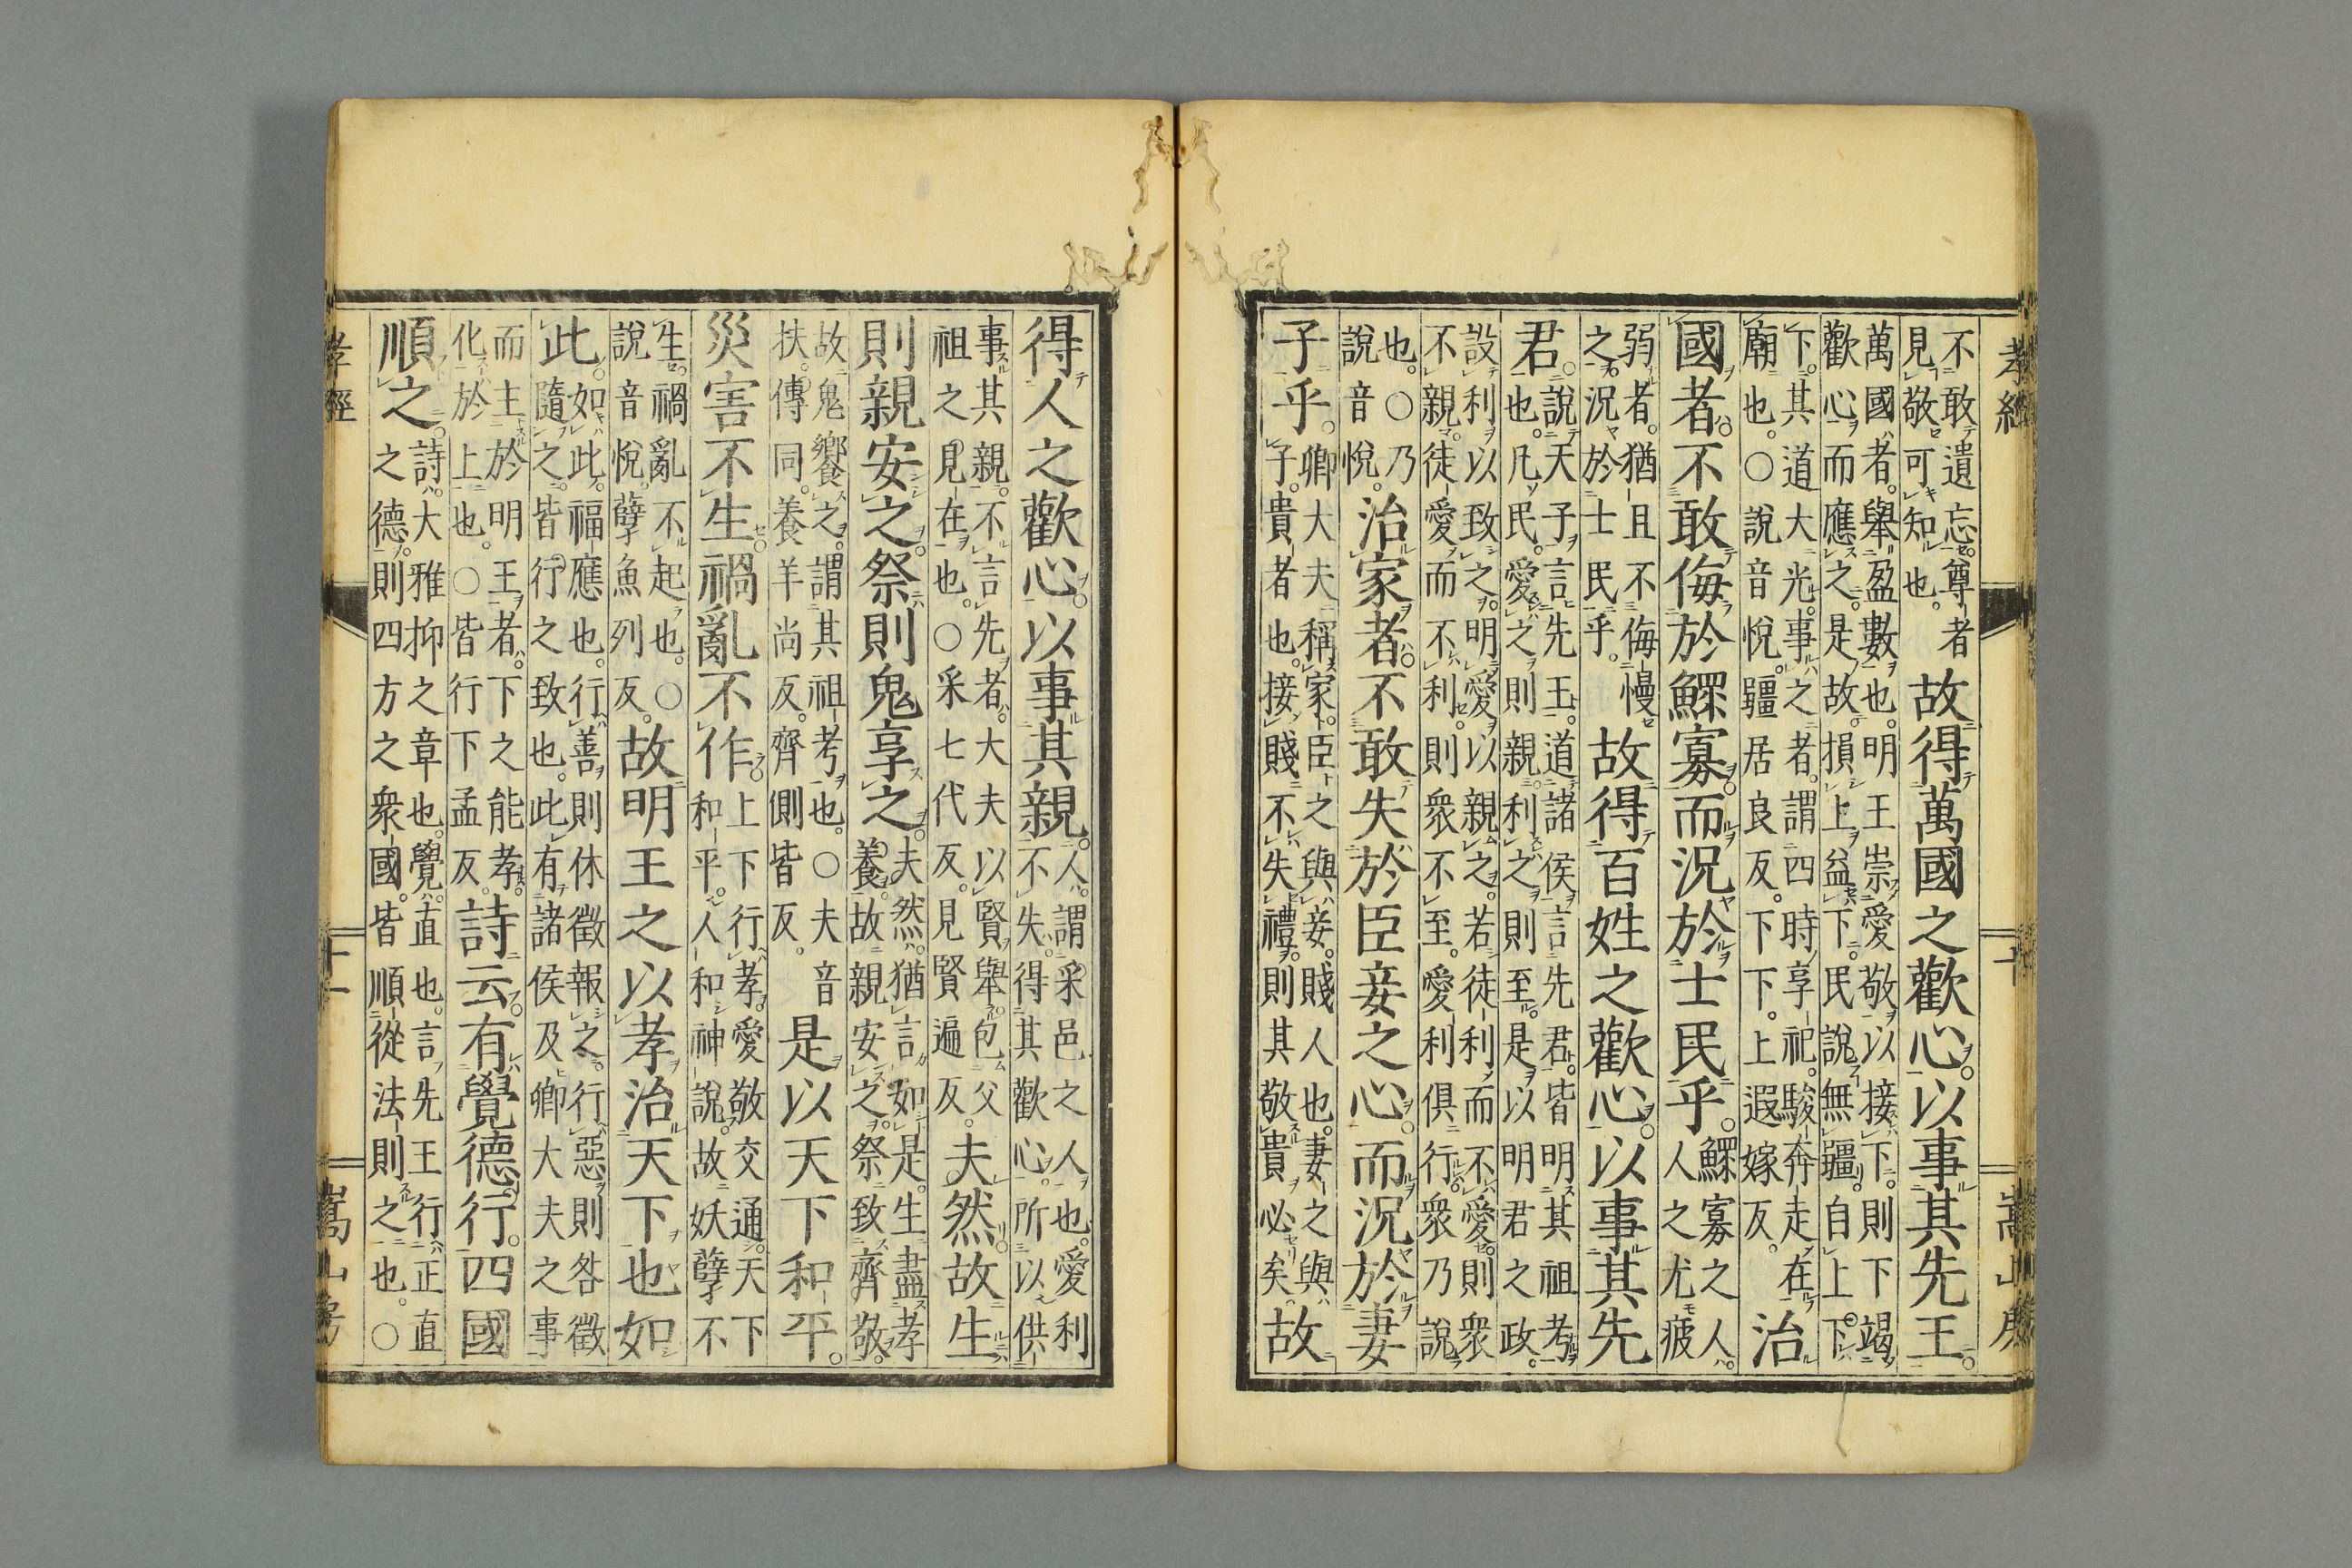 孝經
不敢遺忘尊者
見敬可知也故得萬國之歡心以事其先王
萬國者舉盈數也明王崇愛敬以接下則下竭
歡心而應之是故損上益下民說無疆自上下
下其道大光事之者謂四時享祀駿奔走在
廟也○說音悅疆居良反下下上遐嫁反治
國者不敢侮於鰥寡而況於士民乎鰥寡之人
人之尤疲
弱者猶且不侮慢
之況於士民乎故得百姓之歡心以事其先
君說天子言先王道諸侯言先君皆明其祖考
也凡民愛之則親利之則至是以明君之政
設利以致之明愛以親之若徒利而不愛則衆
不親徒愛而不利則衆不至愛利俱行衆乃說
也○乃
說音悅治家者不敢失於臣妾之心而況於妻
子乎卿大夫稱家臣之與妾賤人也妻之與
子貴者也接賤不失禮則其敬貴必矣故
十
嵩山房
得人之歡心以事其親人謂采邑之人也愛利
不失得其歡心所以供
事其親不言先者大夫以賢舉包父
祖之見在也○采七代反見賢遍反夫然故生
則親安之祭則鬼享之夫然猶言如是生盡孝
養故親安之祭致齊敬
故鬼饗之謂其祖考也○夫音
扶傳同養羊尚反齊側皆反是以天下和平
災害不生禍亂不作上下行孝愛敬交通天下
和平人和神說故妖孽不
生禍亂不起也○
說音悅孽魚列反故明王之以孝治天下也如
此如此福應也行善則休徵報之行惡則咎徵
隨之皆行之致也此有諸侯及卿大夫之事
而主於明王者下之能孝
化於上也○皆行下孟反詩云有覺德行四國
順之詩大雅抑之章也覺直也言先王行正直
之德則四方之衆國皆順從法則之也○
孝經
十一
嵩山房